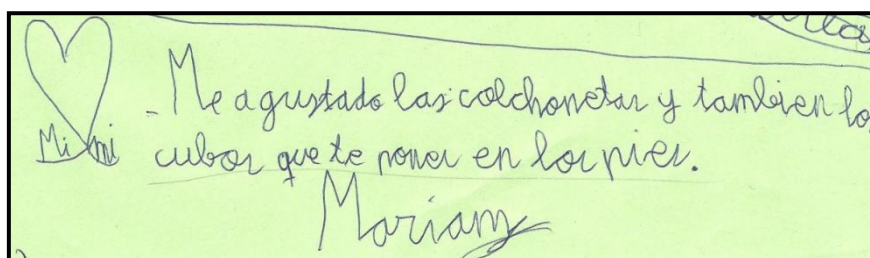 - Me agustado las colchonetas y tambien los
cubos que te pones en los pies.
Mi mi
Mariam